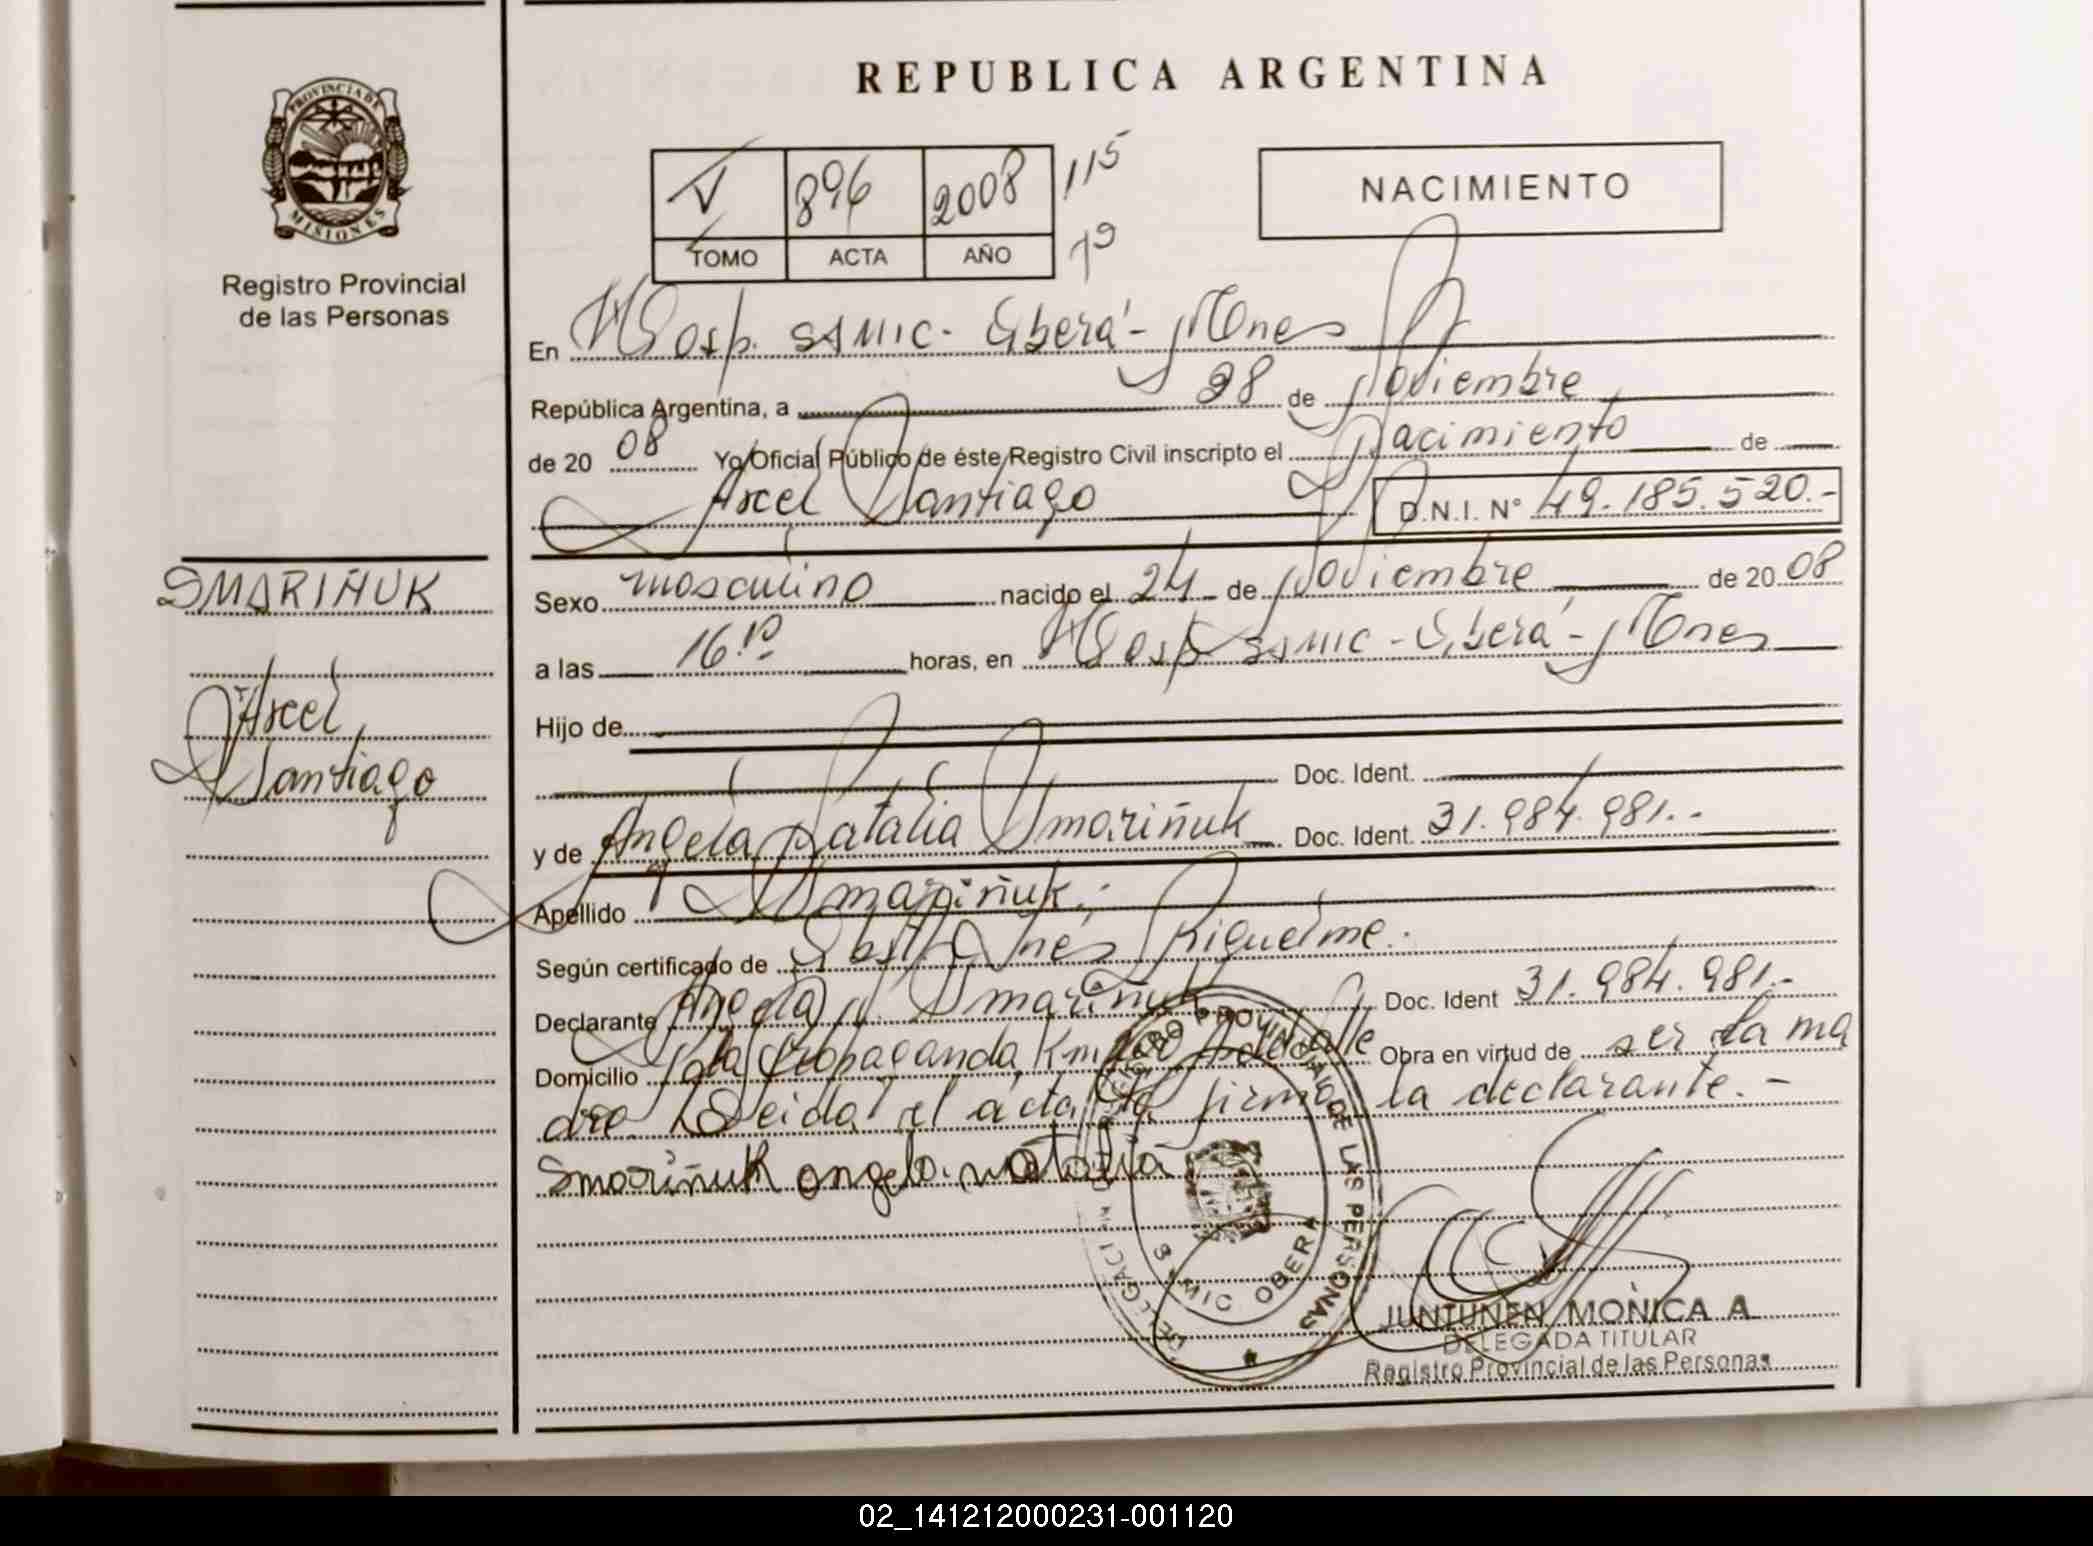 REPUBLICA ARGENTINA
PROVINCIA DE
MISIONES
Registro Provincial
de las Personas
V 896 2008 115
TOMO ACTA AÑO
NACIMIENTO
En Hosp. SAMIC - Oberá - Mnes
República Argentina, a 28 de Noviembre
de 2008 Yo Oficial Público de éste Registro Civil inscripto el Nacimiento de
Axcel Santiago D.N.I. N° 49.185.520.-
SMARIÑUK
Axcel
Santiago
Sexo masculino nacido el 24 de Noviembre de 2008
a las 16.10 horas, en Hosp SAMIC - Oberá - Mnes
Hijo de
Doc. Ident.
y de Angela Natalia Smariñuk Doc. Ident. 31.984.981.-
Apellido Smariñuk.-
Según certificado de Obst. Inés Riquelme.-
Declarante Angela N. Smariñuk Doc. Ident 31.984.981.-
Domicilio Propaganda, Km Obra en virtud de ser la ma
dre. Leída el acta la firma la declarante.-
Smariñuk angela natalia
REGISTRO PROVINCIAL DE LAS PERSONAS
SAMIC OBERA
JUNTUNEN MONICA A
DELEGADA TITULAR
Registro Provincial de las Personas
02_141212000231-001120